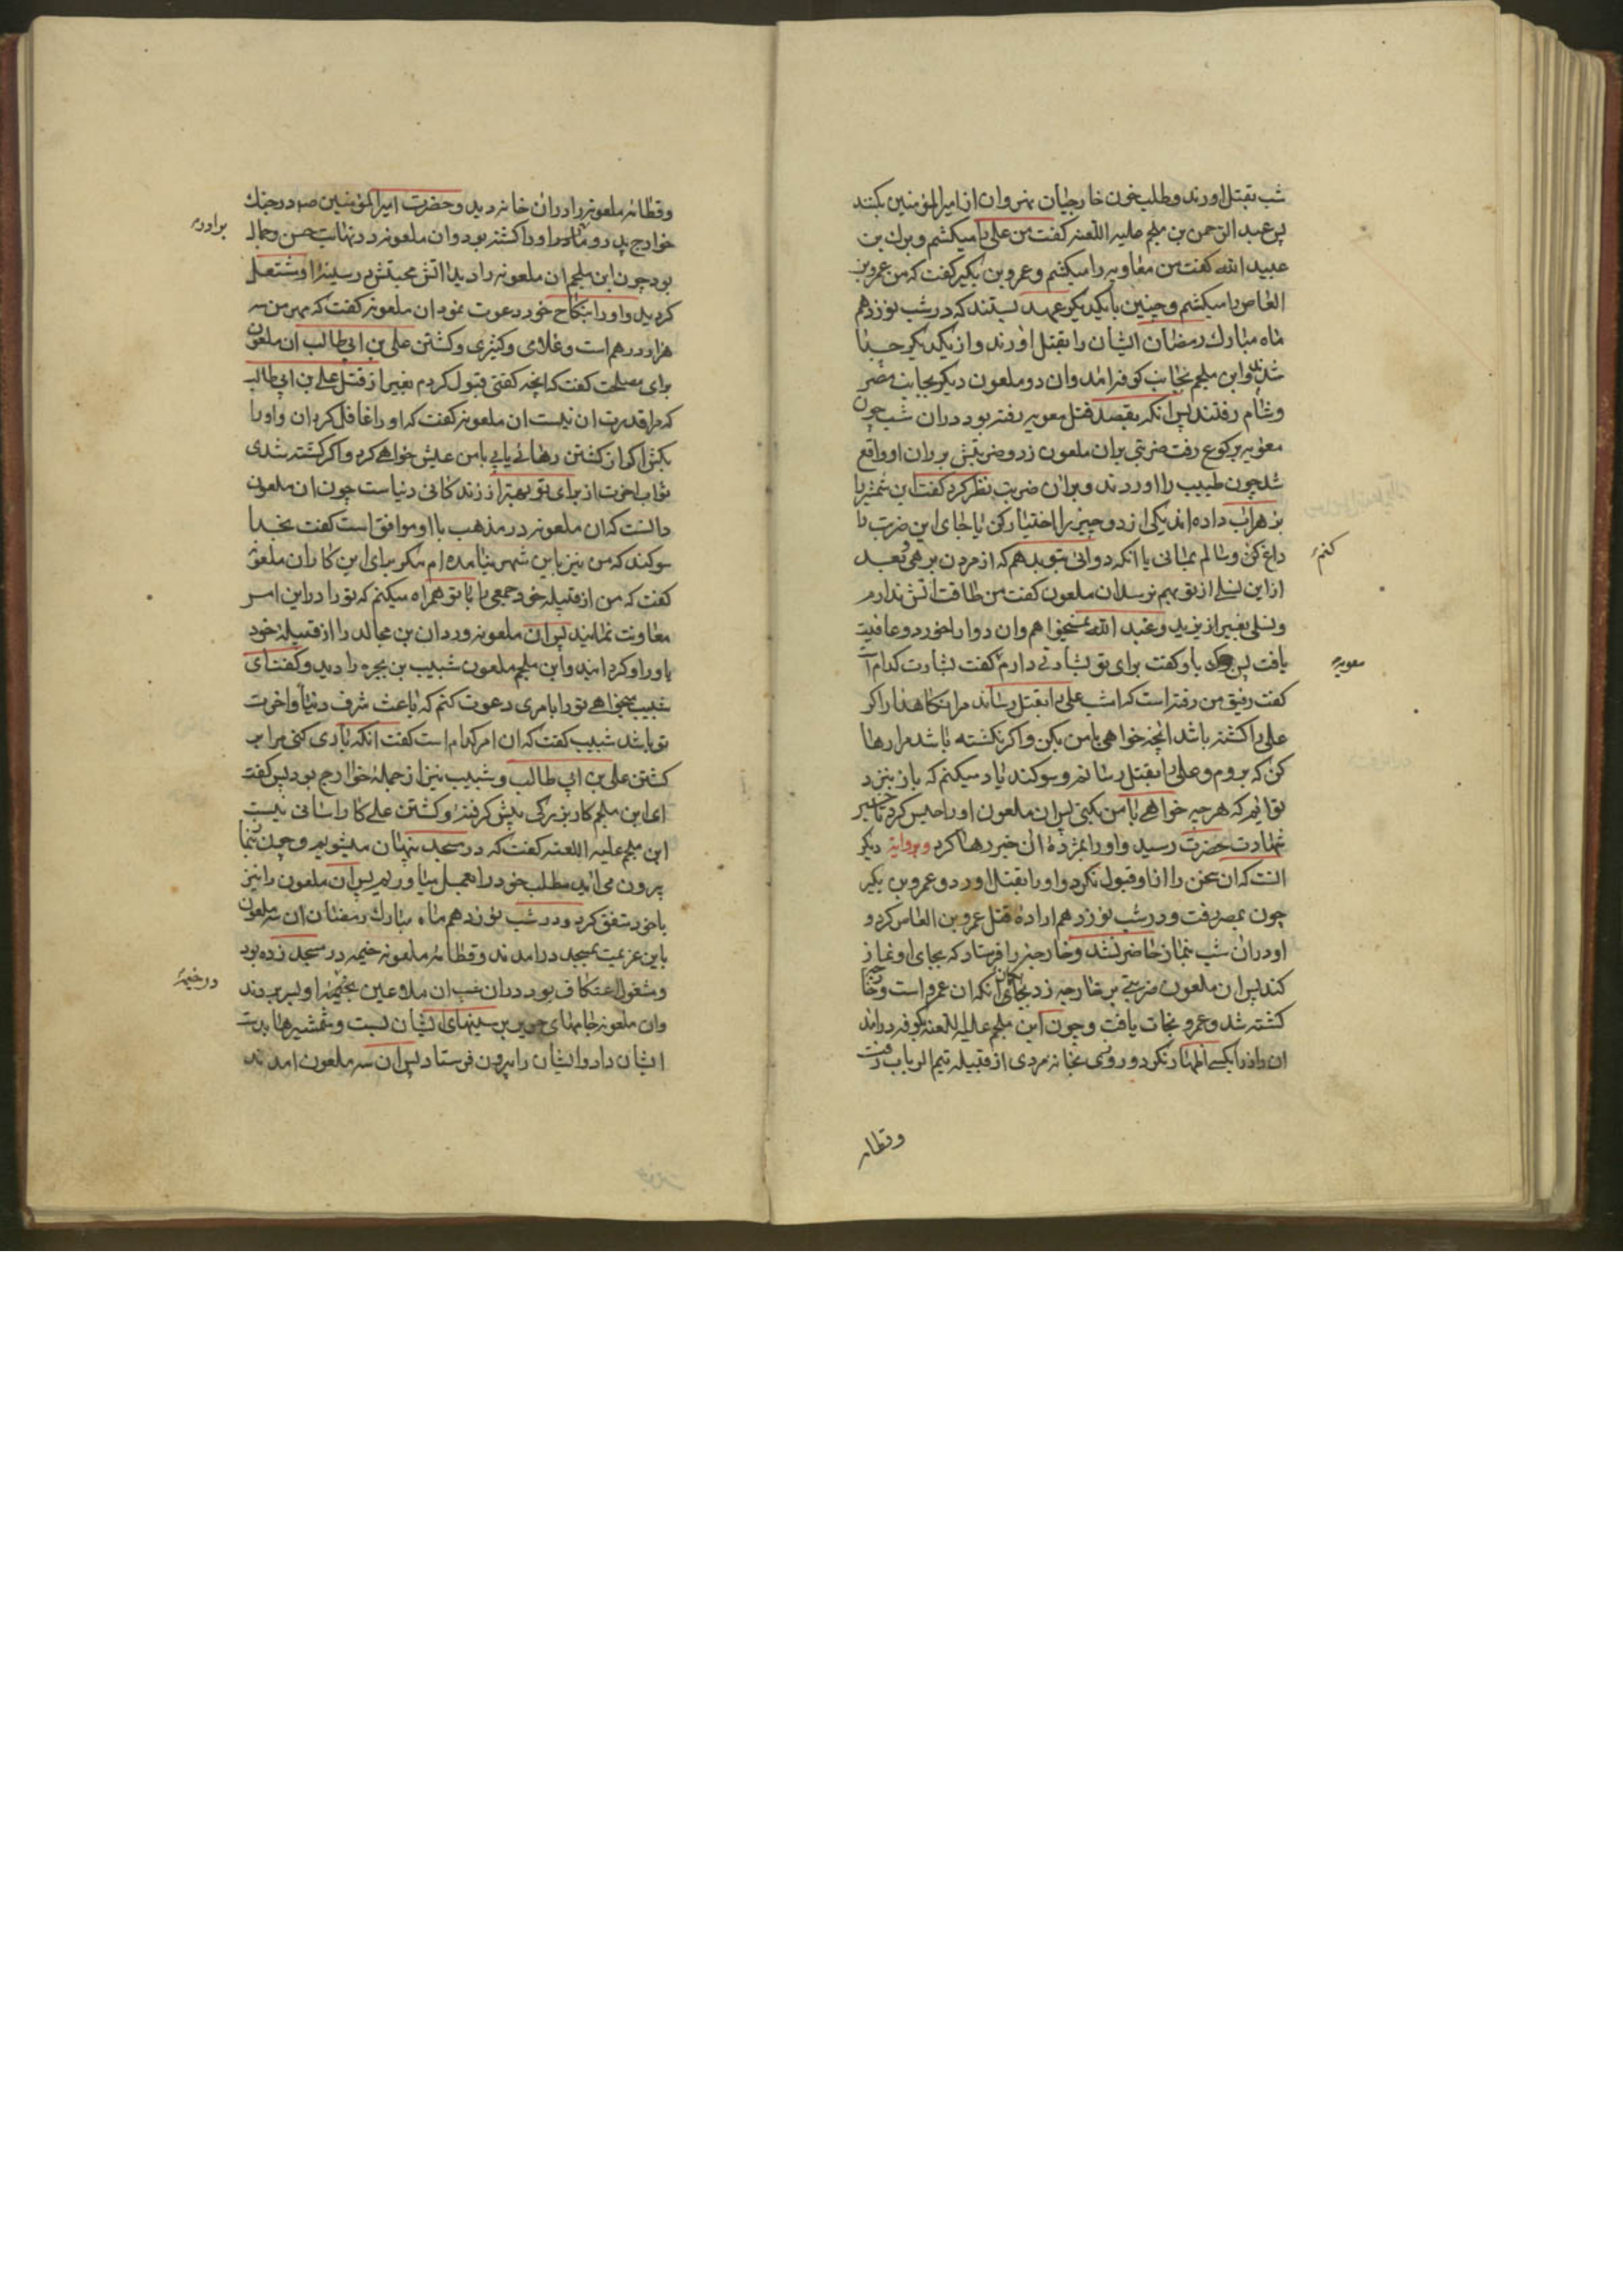 شب بقتل اورند و طلب خون خارجیان نهروان از امیرالمؤمنین بکنند
پس عبد الرحمن بن ملجم علیه اللعنه گفت من علی را میکشم و برک بن
عبید الله گفت من معاویه را میکشم و عمرو بن بکیر گفت که من عمرو بن
العاص را میکشم و چنین با یکدیکر عهد بستند که در شب نوزدهم
ماه مبارک رمضان ایشان را بقتل اورند و از یکدیکر جدا
شدند و ابن ملجم بجانب کوفه امد وان دو ملعون دیکر بجانب مصر
و شام رفتند پس انکه بقصد قتل معویه رفته بود در ان شب چون
معویه برکوع رفت ضربتی بران ملعون زد و ضربتش بر ران او واقع
شد چون طبیب را اوردند و بران ضربت نظر کرد گفت این شمشیر را
بزهراب داده اند یکی از دو چیز را اختیار کن یا جای این ضربت را
داغ کن و سالم بمانی یا انکه دوائی بتو بدهم که از مردن برهی و بعد
کنم
از این نسلی از تو بهم نرسد ان ملعون گفت من طاقت اتش ندارم
و نسلی بغیر از یزید و عبد الله نمیخواهم وان دوا را خورد و عافیت
یافت پس برک باو گفت برای تو بشارتی دارم گفت بشارت کدام است
معویه
گفت رفیق من رفته است که امشب علی را بقتل رساند مرا نکاهدار اکر
علی را کشته باشد انچه خواهی با من بکن و اکر نکشته باشد مرا رها
کن که بروم و علی را بقتل رسانم و سوکند یاد میکنم که باز بنزد
تو ایم که هر چه خواهی با من بکنی پس ان ملعون او را حبس کرد تا خبر
شهادت حضرت رسید و او را بمژدهٔ ان خبر رها کرد و بروایت دیکر
انست که ان سخن را از او قبول نکرد و او را بقتل اورد و عمرو بن بکیر
چون بمصر رفت و در شب نوزدهم ارادهٔ قتل عمرو بن العاص کرد و
او دران شب بنماز حاضر نشد و خارجه را فرستاد که بجای او نماز
کند پس ان ملعون ضربتی بر خارجه زد بکمان انکه ان عمرو است و خارجه
کشته شد و عمرو نجات یافت و چون ابن ملجم علیه اللعنه بکوفه درامد
ان راز را بکسی اظهار نکرد و روزی بخانه مردی از قبیله تیم الرباب رفت
وقطامه
وقطامهٔ ملعونه را دران خانه دید و حضرت امیرالمؤمنین ص در جنک
خوارج پدر و برادر او را کشته بود وان ملعونه در نهایت حسن و جمال
برادر
بود چون ابن ملجم ان ملعونه را دید اتش محبتش در سینهٔ او مشتعل
کردید و او را بنکاح خود دعوت نمود ان ملعونه گفت که مهر من سه
هزار درهم است و غلامی و کنیزی و کشتن علی بن ابی طالب ان ملعون
برای مصلحت گفت که انچه کفتی قبول کردم بغیر از قتل علی بن ابی طالب
که مرا قدرت ان نیست ان ملعونه گفت که او را غافل کردان و او را
بکش اکر از کشتن رهائی یابی با من عیش خواهی کرد و اکر کشته شدی
ثواب اخرت از برای تو بهتر از زندکانی دنیاست چون ان ملعون
دانست که ان ملعونه در مذهب با او موافق است گفت بخدا
سوکند که من نیز باین شهر نیامده ام مکر برای این کار ان ملعونه
کفت که من از قبیلهٔ خود جمعی را با تو همراه میکنم که تو را در این امر
معاونت نمایند پس ان ملعونه وردان بن مجالد را از قبیلهٔ خود
یاور او کردانید و ابن ملجم ملعون شبیب بن بجره را دید و کفت ای
شبیب میخواهی تو را بامری دعوت کنم که باعث شرف دنیا و اخرت
تو باشد شبیب کفت که ان امر کدام است کفت انکه یاری کنی مرا بر
کشتن علی بن ابی طالب و شبیب نیز از جملهٔ خوارج بود پس کفت
ای ابن ملجم کار بزرکی پیش کرفتهٔ و کشتن علی کار اسانی نیست
ابن ملجم علیه اللعنه کفت که در مسجد پنهان میشویم و چون بنماز
بیرون می اید مطلب خود را بعمل میاوریم پس ان ملعون را نیز
با خود متفق کرد و در شب نوزدهم ماه مبارک رمضان ان سه ملعون
باین عزیمت بمسجد درامدند و قطامهٔ ملعونه خیمه در مسجد زده بود
و مشغول اعتکاف بود دران شب ان ملاعین بخیمهٔ او بسر بردند
در خیمهٔ
وان ملعونه جامهای حریر بر سینهای ایشان بست و شمشیرها بدست
ایشان داد و ایشان را بیرون فرستاد پس ان سه ملعون امدند